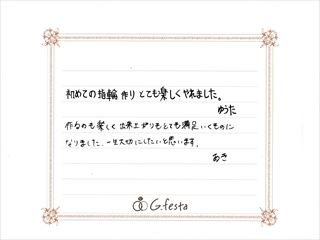 初めての指輪作りとても楽しくやれました。
ゆうた
作るのも楽しく出来上がりもとても満足いくものに
なりました。一生大切にしたいと思います。
あき
G.festa